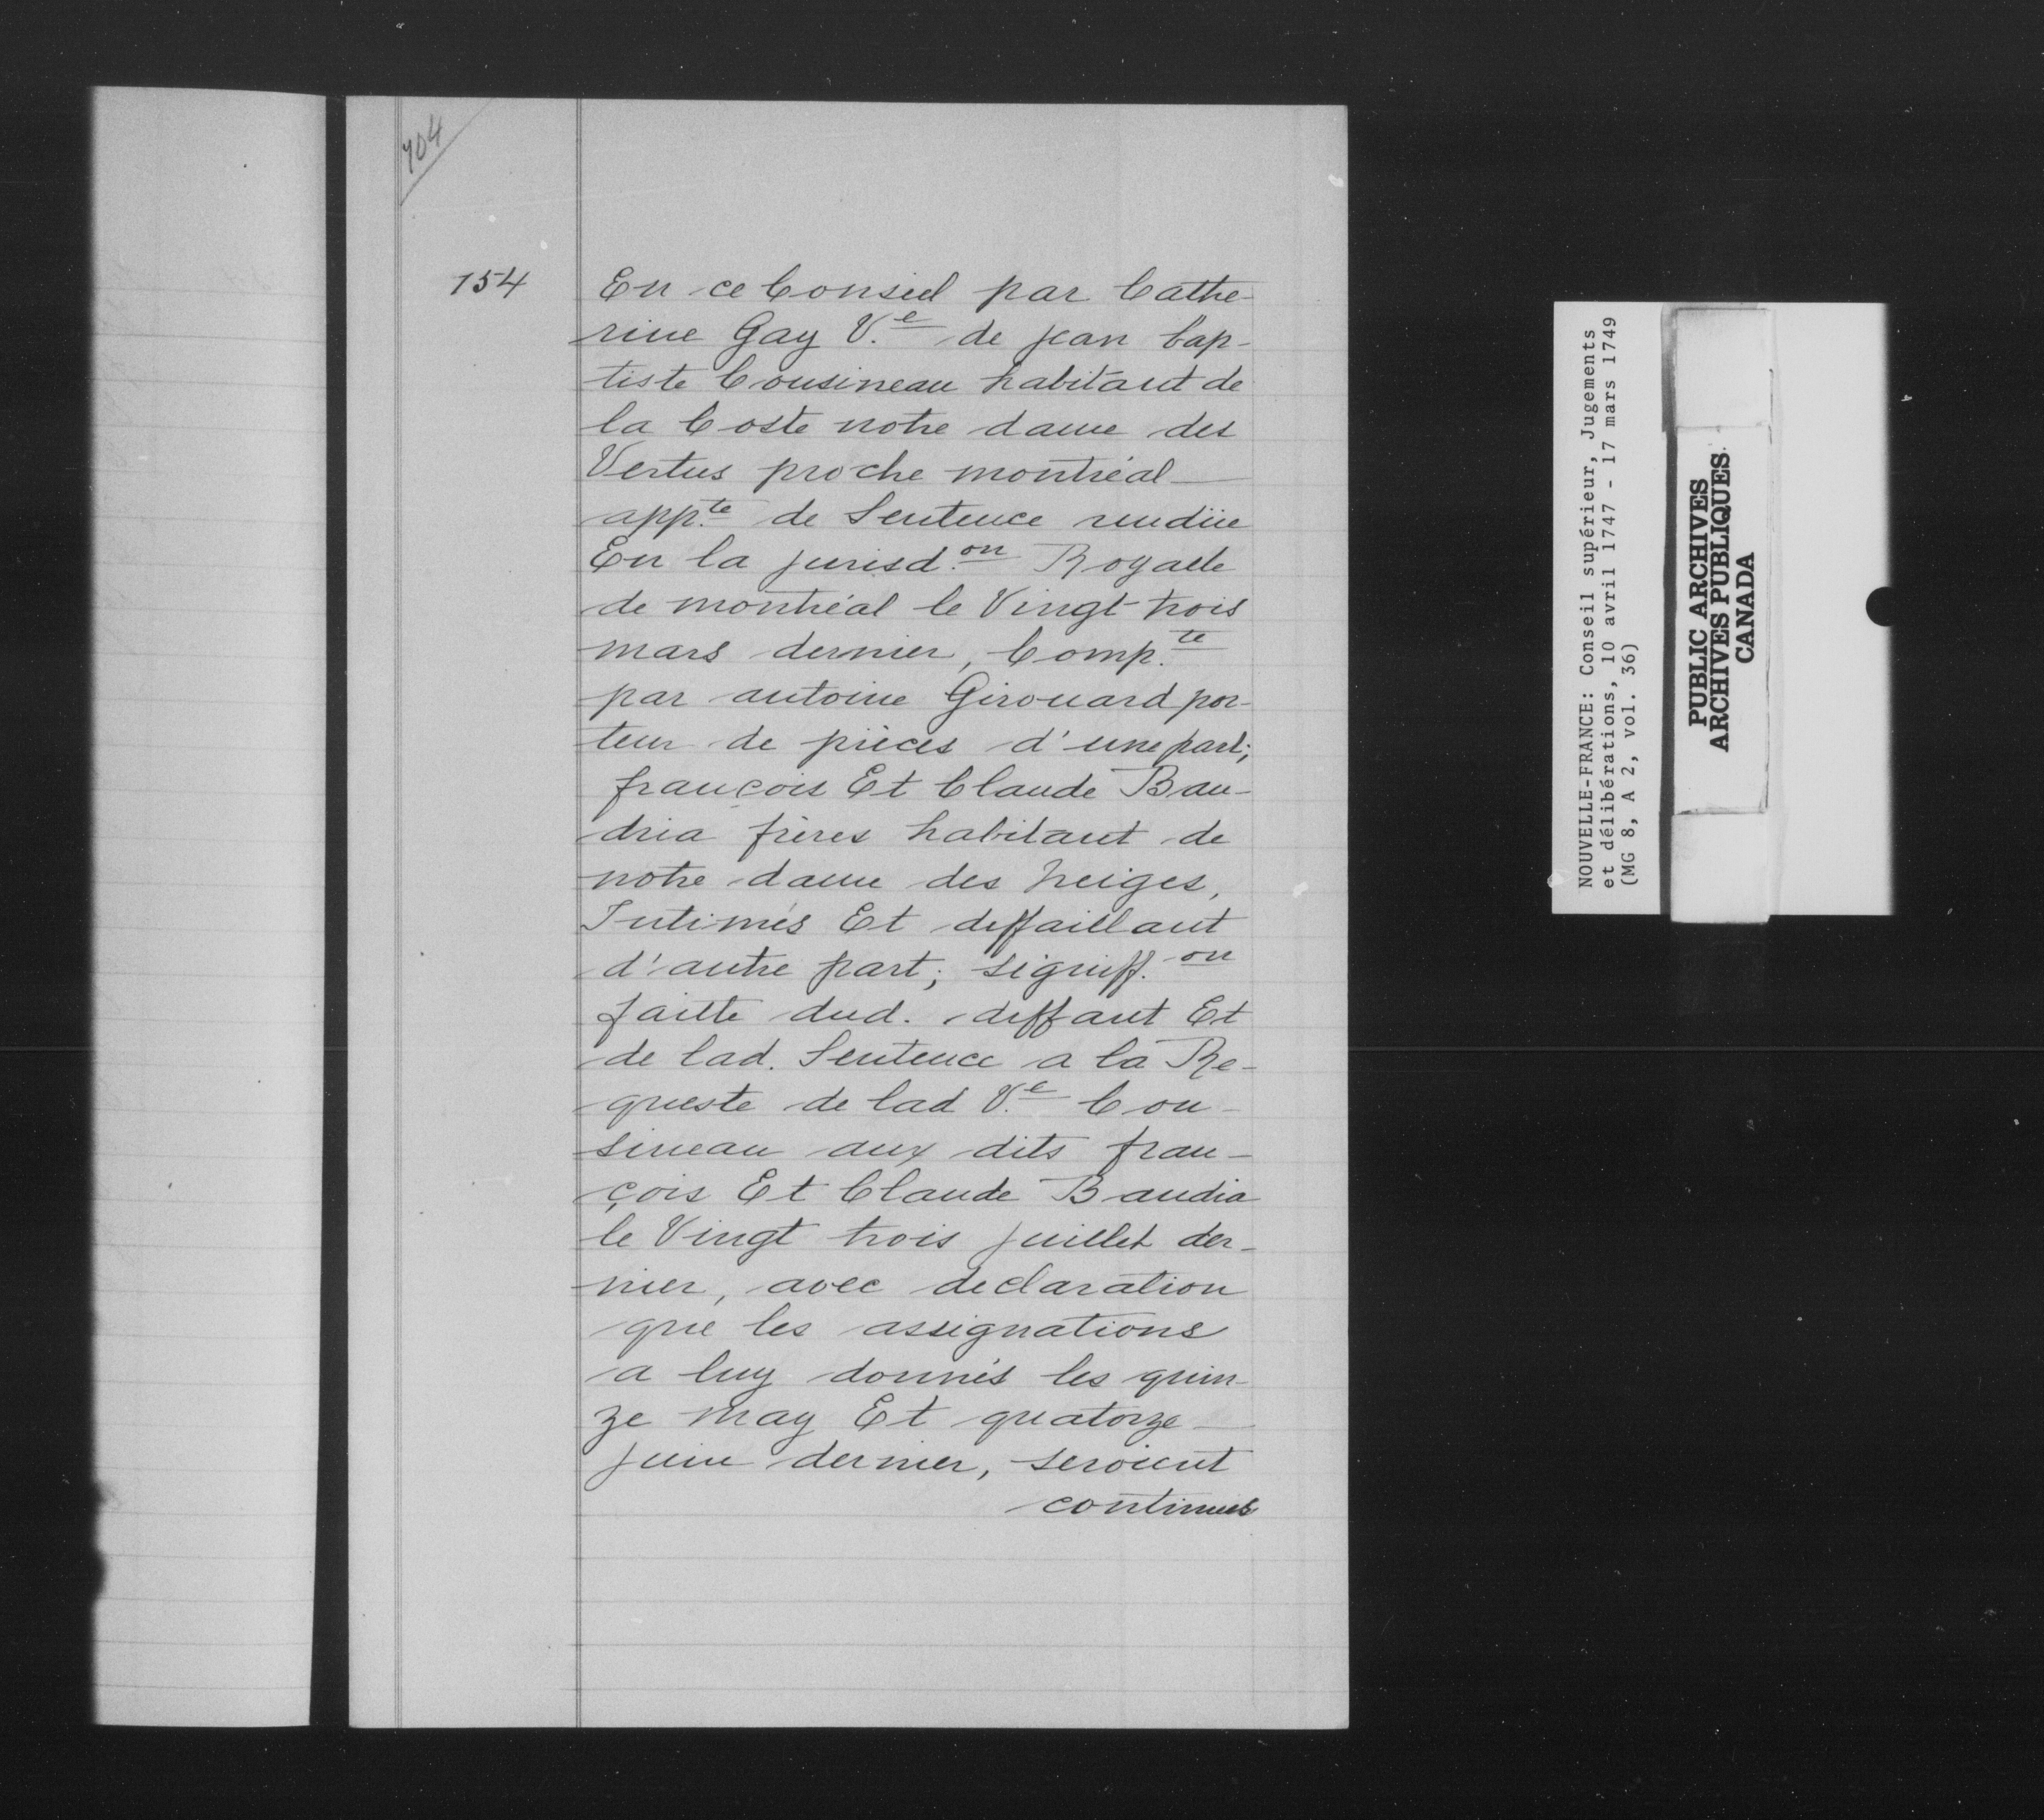 104
154
En ce Conseil par Cathe-
rine Gay V.e de jean bap-
tiste Cousineau habitant de
la Coste notre dame des
Vertus proche montréal
app.te de Sentence rendüe
En la jurisd.on Royalle
de montréal le Vingt trois
mars dernier, Comp.te
par antoine Girouard por-
teur de pièces d'une part;
françois Et Claude Bau-
dria frères habitant de
notre dame des Neiges,
Intimés Et deffaillant
d'autre part; signiff.on
faitte dud. deffaut Et
de lad. Sentence a la Re-
queste de lad V.e Cou-
sineau aux dits fran-
çois Et Claude Baudia
le Vingt trois juillet der-
nier, avec declaration
que les assignations
a luy donnés les quin-
ze may Et quatorze
juin dernier, seroient
continués
NOUVELLE-FRANCE: Conseil supérieur, Jugements
et délibérations, 10 avril 1747 - 17 mars 1749
(MG 8, A 2, vol. 36)
PUBLIC ARCHIVES
ARCHIVES PUBLIQUES
CANADA